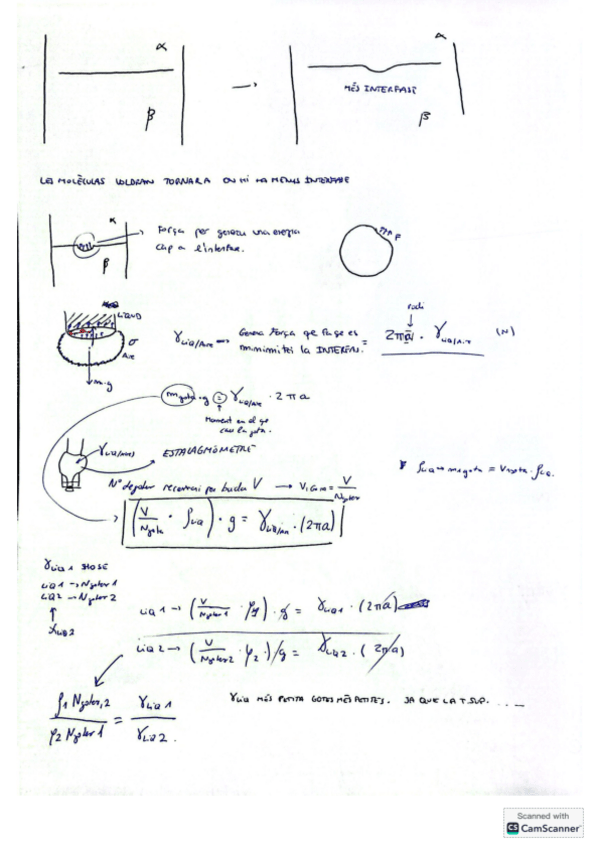 α
β
→
α
MÉS INTERFASE
β
LES MOLÈCULAS VOLDRAN TORNAR A ON HI HA MENYS INTERFASE
α
β
Força per generar una energia
cap a l'interfase.
F
LIQUID
σ
Aire
m·g
γ LIQ/Aire → Genera Força que fa que es
minimitzi la INTERFAS. =
radi
2πa · γ LIQ/Aire (N)
m gota · g = γ LIQ/Aire · 2πa
Moment en el qe
cau la gota.
ESTALAGMÒMETRE
Nº de gotes recorren per buidar V → V 1 Gota = V / N gotes
ρ LIQ → m 1 gota = V 1 gota · ρ LIQ.
(V / N gota · ρ LIQ) · g = γ LIQ/Aire · (2πa)
γ LIQ 1 
LIQ 1 → N gotes 1
LIQ 2 → N gotes 2
↑
γ LIQ 2
LIQ 1 → (V / N gotes 1 · ρ1) · g = γ LIQ 1 · (2πa)
LIQ 2 → (V / N gotes 2 · ρ2) · g = γ LIQ 2 · (2πa)
ρ1 N gotes, 2 / ρ2 N gotes 1 = γ LIQ 1 / γ LIQ 2.
γ LIQ MÉS PETITA GOTES MÉS PETITES. JA QUE LA T. SUP. ....
Scanned with
CS CamScanner